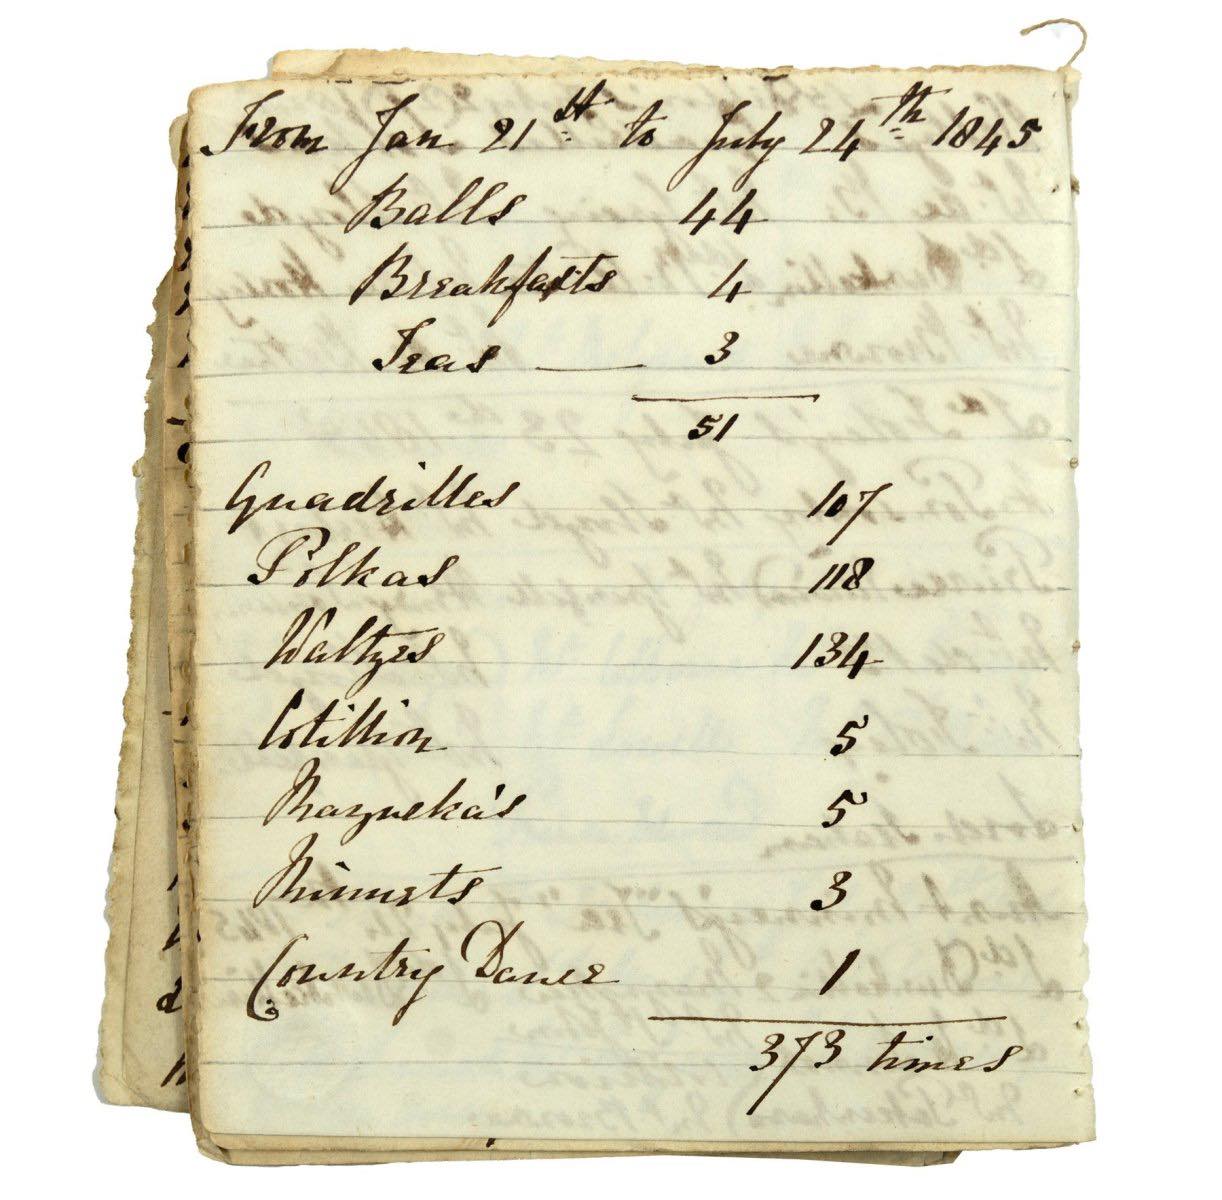 From Jan 21st to July 24th 1845
Balls 44
Breakfasts 4
Teas — 3
51
Quadrilles 107
Polkas 118
Waltzes 134
Cotillion 5
Mazurka's 5
Minuets 3
Country Dance 1
373 times